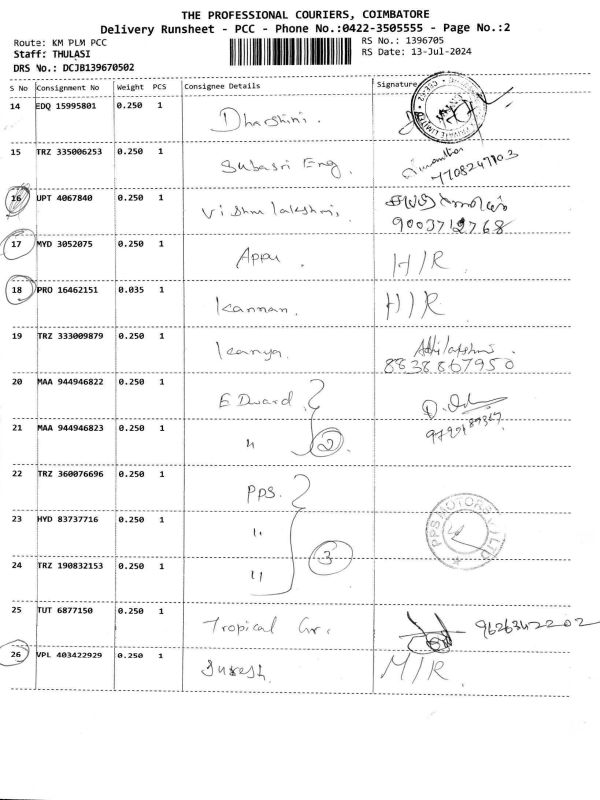 THE PROFESSIONAL COURIERS, COIMBATORE
Delivery Runsheet - PCC - Phone No.:0422-3505555 - Page No.:2
Route: KM PLM PCC
RS No.: 1396705
Staff: THULASI
RS Date: 13-Jul-2024
DRS No.: DCJB139670502
S No Consignment No Weight PCS Consignee Details Signature
14 EDQ 15995801 0.250 1 Dharshini.
15 TRZ 335006253 0.250 1 Subasri Eng. 7708247103
16 UPT 4067840 0.250 1 Vishnu lakshmi,
9003712768
17 MYD 3052075 0.250 1 Appu. H/R.
18 PRO 16462151 0.035 1 Kannan. H/R.
19 TRZ 333009879 0.250 1 Kanya. Athilakshmi.
8838867950
20 MAA 944946822 0.250 1 EDward.
21 MAA 944946823 0.250 1 " 2
22 TRZ 360076696 0.250 1 PPS.
23 HYD 83737716 0.250 1 " PPS MOTORS
24 TRZ 190832153 0.250 1 " 3
25 TUT 6877150 0.250 1 Tropical 9626342202
26 VPL 403422929 0.250 1 Suresh. M/R.